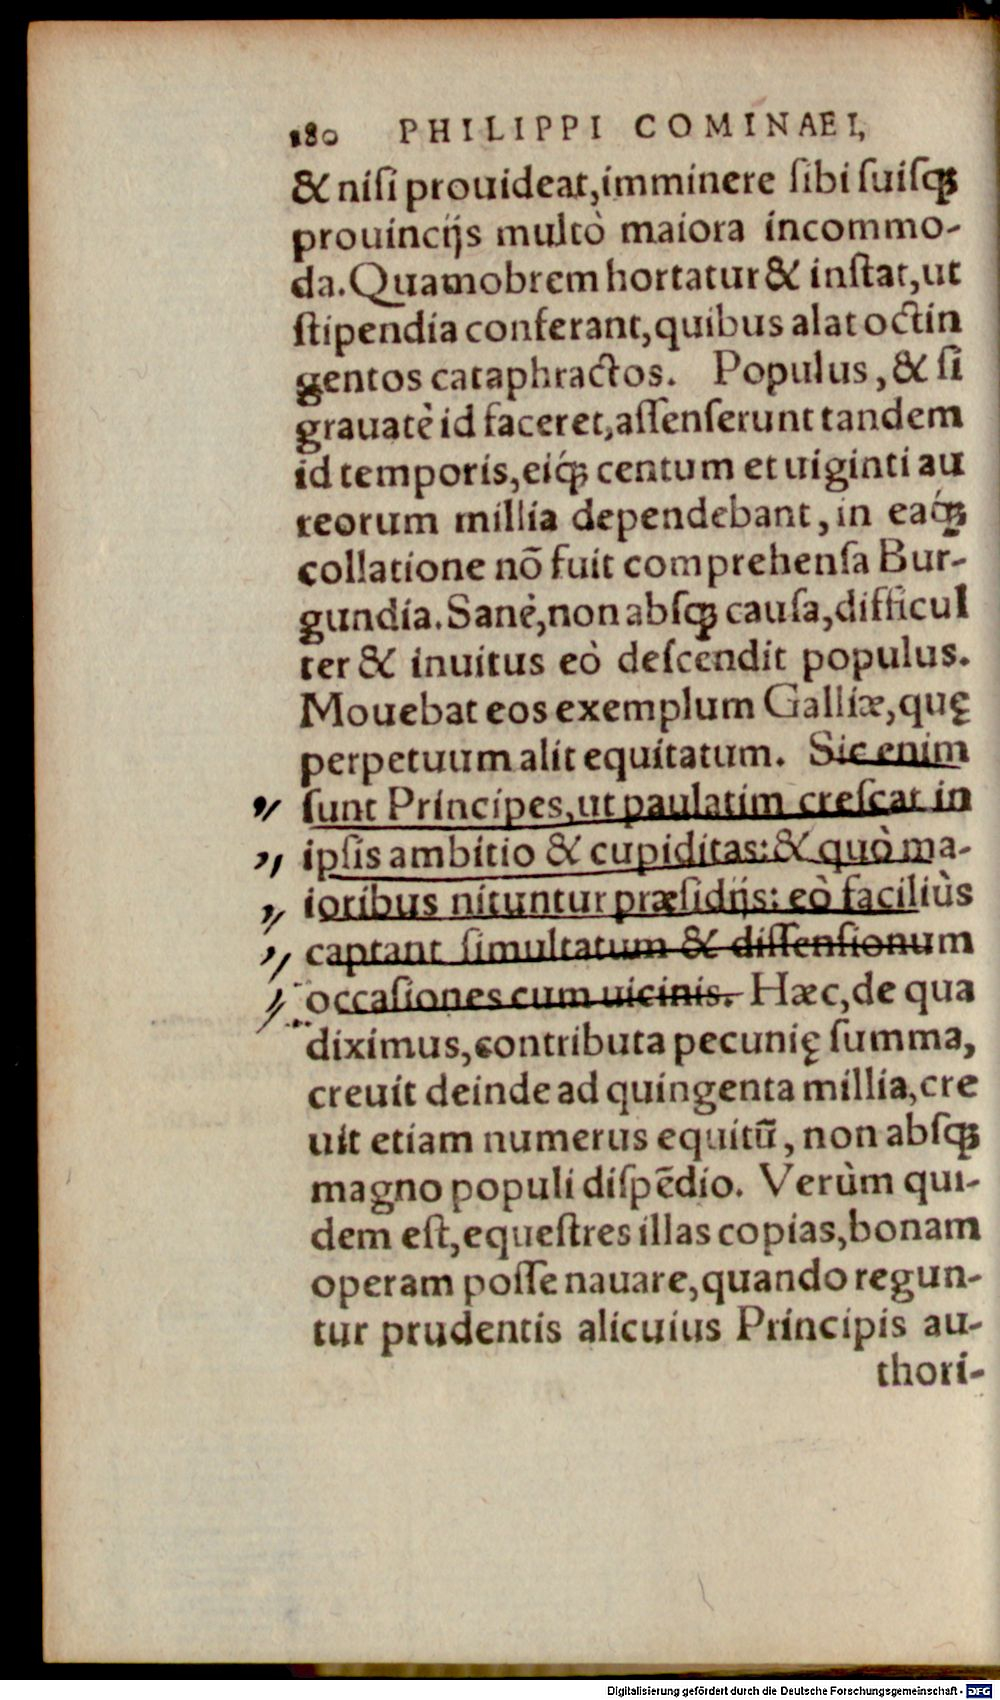 180 PHILIPPI COMINAEI,
& niſi prouideat, imminere ſibi ſuiſq́ꝫ
prouincijs multò maiora incommo-
da. Quamobrem hortatur & inſtat, ut
ſtipendia conferant, quibus alat octin
gentos cataphractos. Populus, & ſi
grauatè id faceret, aſſenſerunt tandem
id temporis, eiq́ꝫ centum et uiginti au
reorum millia dependebant, in eaq́ꝫ
collatione nõ fuit comprehenſa Bur-
gundia. Sanè, non abſqꝫ cauſa, difficul
ter & inuitus eò deſcendit populus.
Mouebat eos exemplum Galliæ, quę
perpetuum alit equitatum. Sic enim
ſunt Principes, ut paulatim creſcat in
ipſis ambitio & cupiditas: & quò ma-
ioribus nituntur præſidijs: eò faciliùs
captant ſimultatum & diſſenſionum
occaſiones cum uicinis. Hæc, de qua
diximus, contributa pecunię ſumma,
creuit deinde ad quingenta millia, cre
uit etiam numerus equitũ, non abſqꝫ
magno populi diſpẽdio. Verùm qui-
dem eſt, equeſtres illas copias, bonam
operam poſſe nauare, quando regun-
tur prudentis alicuius Principis au-
thori-
Digitalisierung gefördert durch die Deutsche Forschungsgemeinschaft - DFG